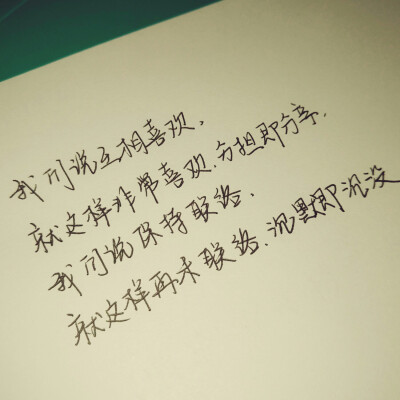 我们说互相喜欢，
就这样非常喜欢，分担即分享．
我们说保持联络．
就这样再未联络．沉默即沉没